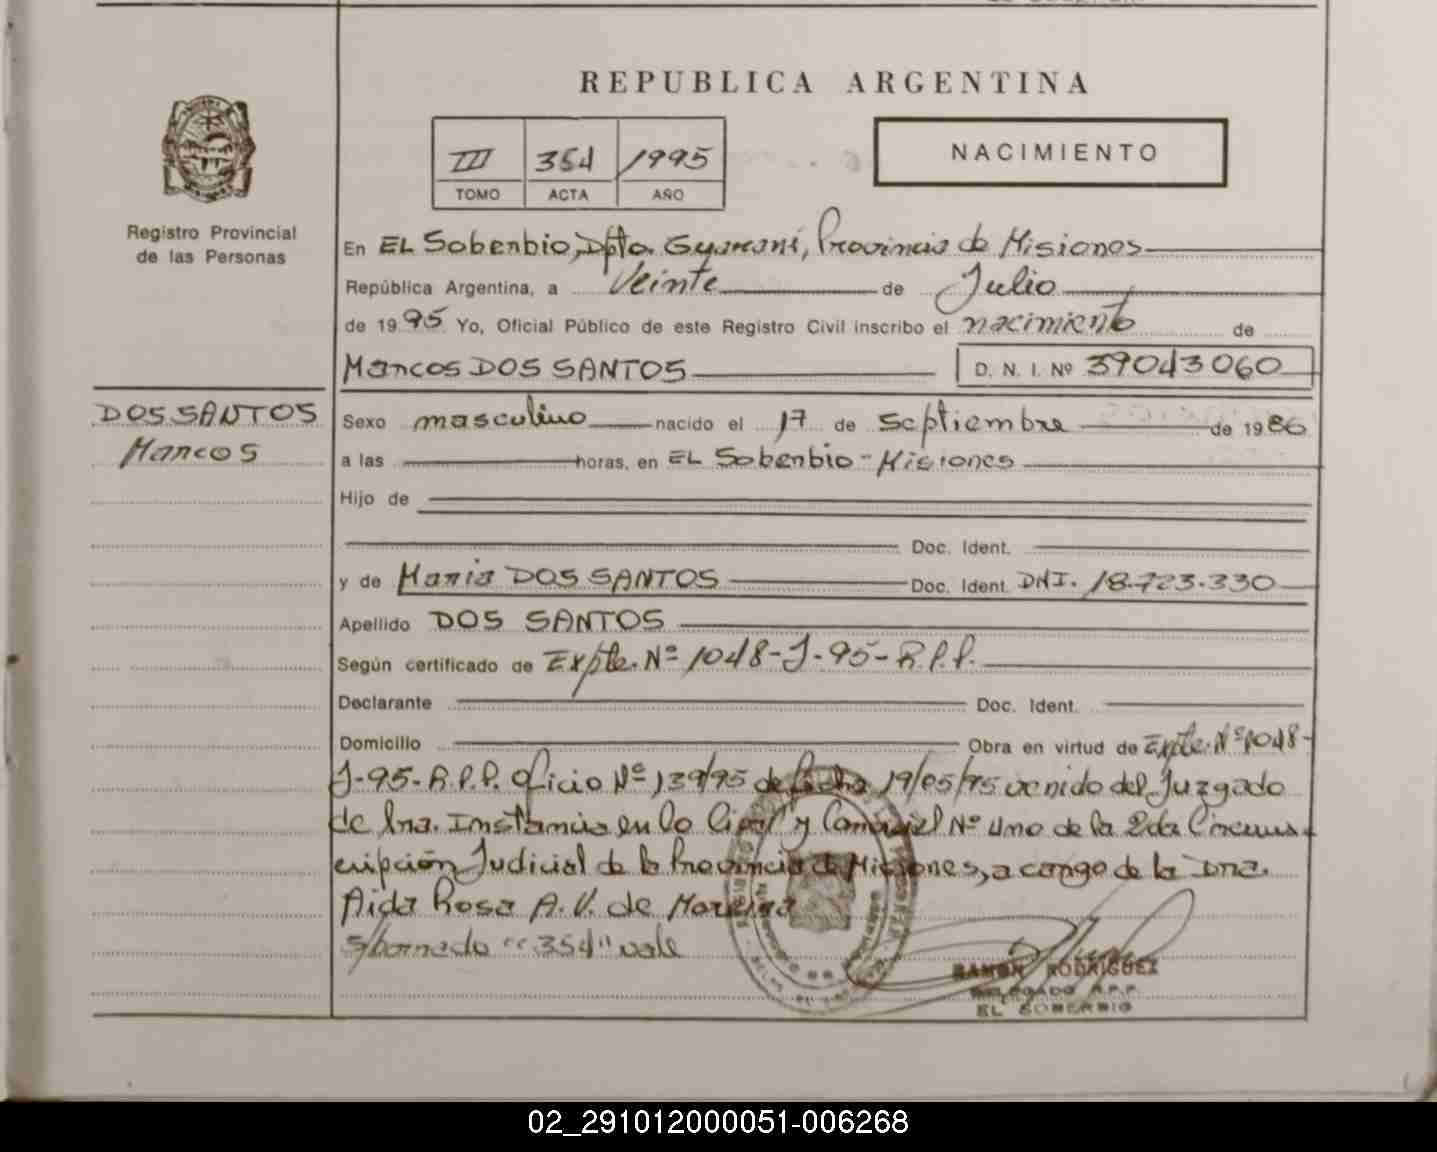 REPUBLICA ARGENTINA
III 354 1995
TOMO ACTA AÑO
NACIMIENTO
Registro Provincial
de las Personas
En EL Soberbio, Dpto. Guaraní, Provincia de Misiones
República Argentina, a Veinte de Julio
de 1995 Yo, Oficial Público de este Registro Civil inscribo el nacimiento de
Marcos DOS SANTOS D. N. I. Nº 39043060
DOS SANTOS
Marcos
Sexo masculino nacido el 17 de Septiembre de 1986
a las horas, en EL Soberbio - Misiones
Hijo de
Doc. Ident.
y de Maria DOS SANTOS Doc. Ident. DNI. 18.723.330
Apellido DOS SANTOS
Según certificado de Expte. Nº 1048-J-95-R.P.P.
Declarante Doc. Ident.
Domicilio Obra en virtud de Expte. Nº 1048-
J-95-R.P.P. Oficio Nº 139/95 de fecha 19/05/95 venido del Juzgado
de 1ra. Instancia en lo Civil y Comercial Nº Uno de la 2da Circuns
cripción Judicial de la Provincia de Misiones, a cargo de la Dra.
Aida Rosa A. V. de Moreira
S/borrado "354" vale
RAMON RODRIGUEZ
DELEGADO R.P.P.
EL SOBERBIO
02_291012000051-006268